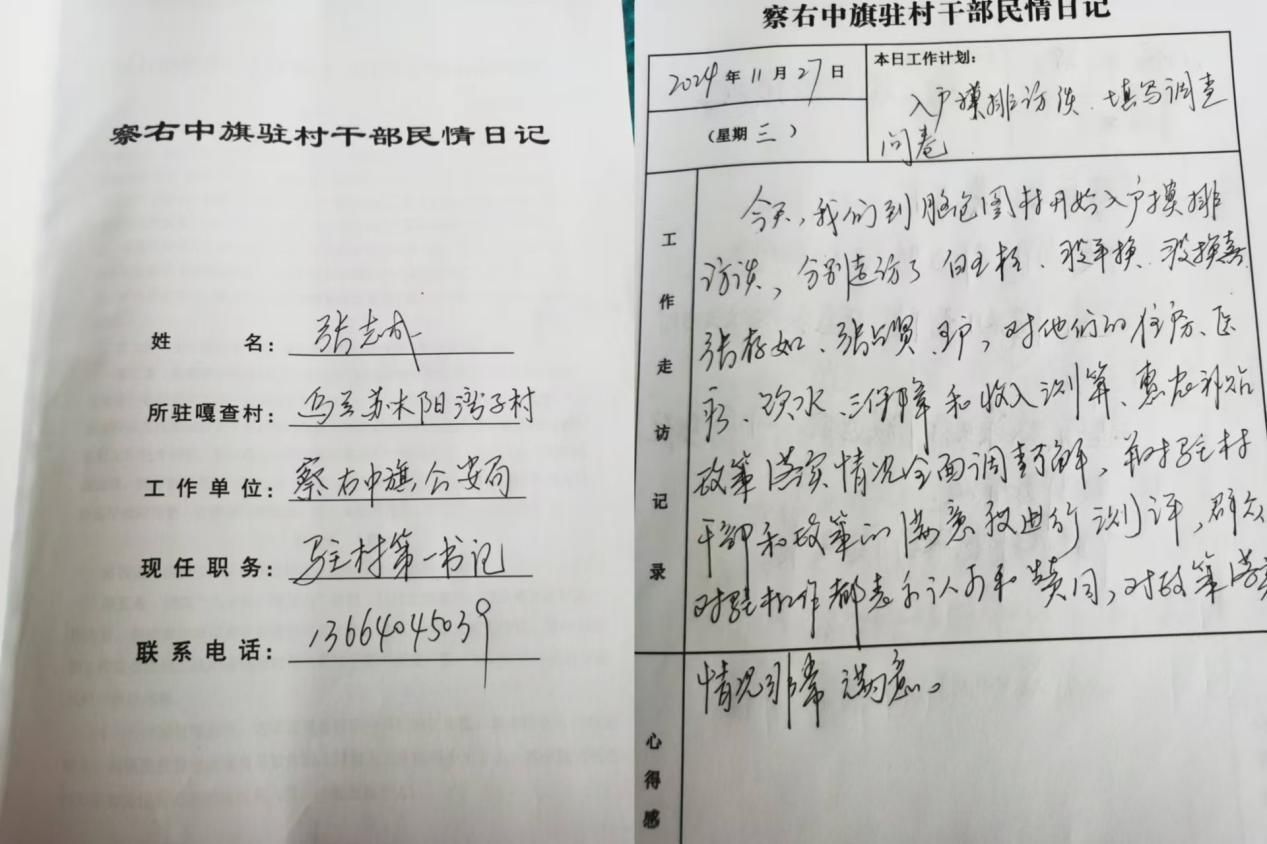 察右中旗驻村干部民情日记
姓 名：张志成
所驻嘎查村：乌兰苏木阳湾子村
工作单位：察右中旗公安局
现任职务：驻村第一书记
联系电话：13664045039
察右中旗驻村干部民情日记
2024年11月27日
（星期三）
本日工作计划：
入户摸排访谈、填写调查
问卷
工作走访记录
今天，我们到脑包图村开始入户摸排
访谈，分别走访了
张存如、张 贤 户，对他们的住房、医
疗、饮水、三保障和收入测算、惠农补贴
政策落实情况全面调查了解，并对驻村
干部和政策的满意度进行测评，群众
对驻村工作都表示认可和赞同，对政策落实
情况非常满意。
心得感